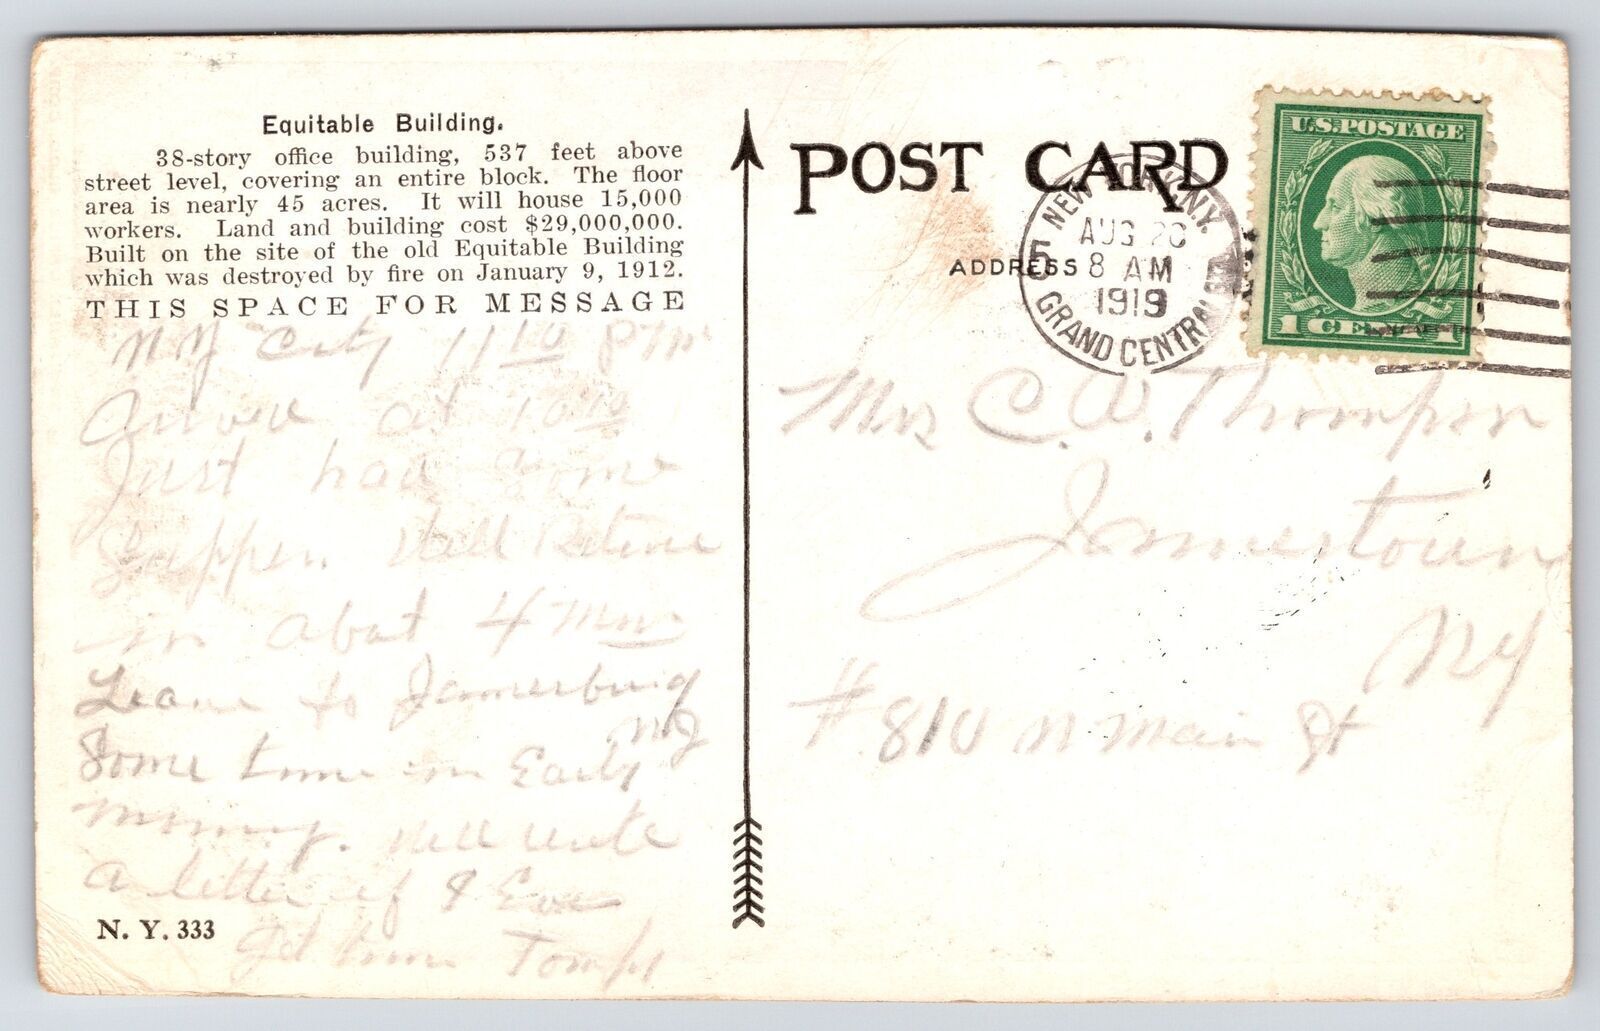 Equitable Building.
38-story office building, 537 feet above
street level, covering an entire block. The floor
area is nearly 45 acres. It will house 15,000
workers. Land and building cost $29,000,000.
Built on the site of the old Equitable Building
which was destroyed by fire on January 9, 1912.
THIS SPACE FOR MESSAGE
NY City 11 10 PM
Arived at 10 10
Just had some
Supper. Will Retire
in abut 4 Mins
Leave to Jamesburg
NJ
Some time in Early
Morning. Will write
a letter if I Ever
get time Tomps
N. Y. 333
POST CARD
ADDRESS
NEW YORK, N.Y.
AUG 20
8 AM
1919
GRAND CENTRAL
5
U.S.POSTAGE
1 CENT 1
Mrs C. W. Thompson
Jamestown
NY
# 810 N Main St